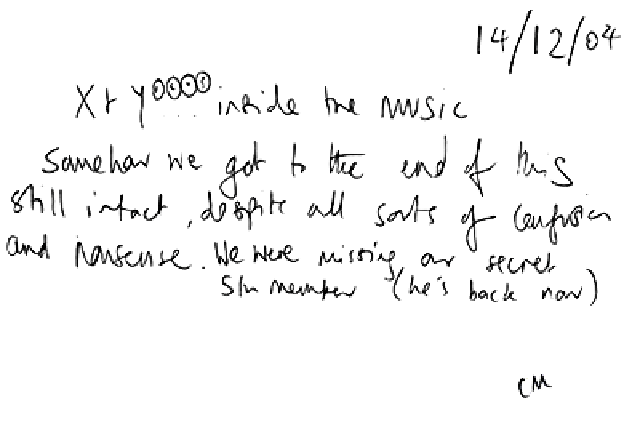 14/12/04
X & Y inside the music
Somehow we got to the end of this
still intact, despite all sorts of confusion
and nonsense. We were missing our secret
5th member (he's back now)
CM